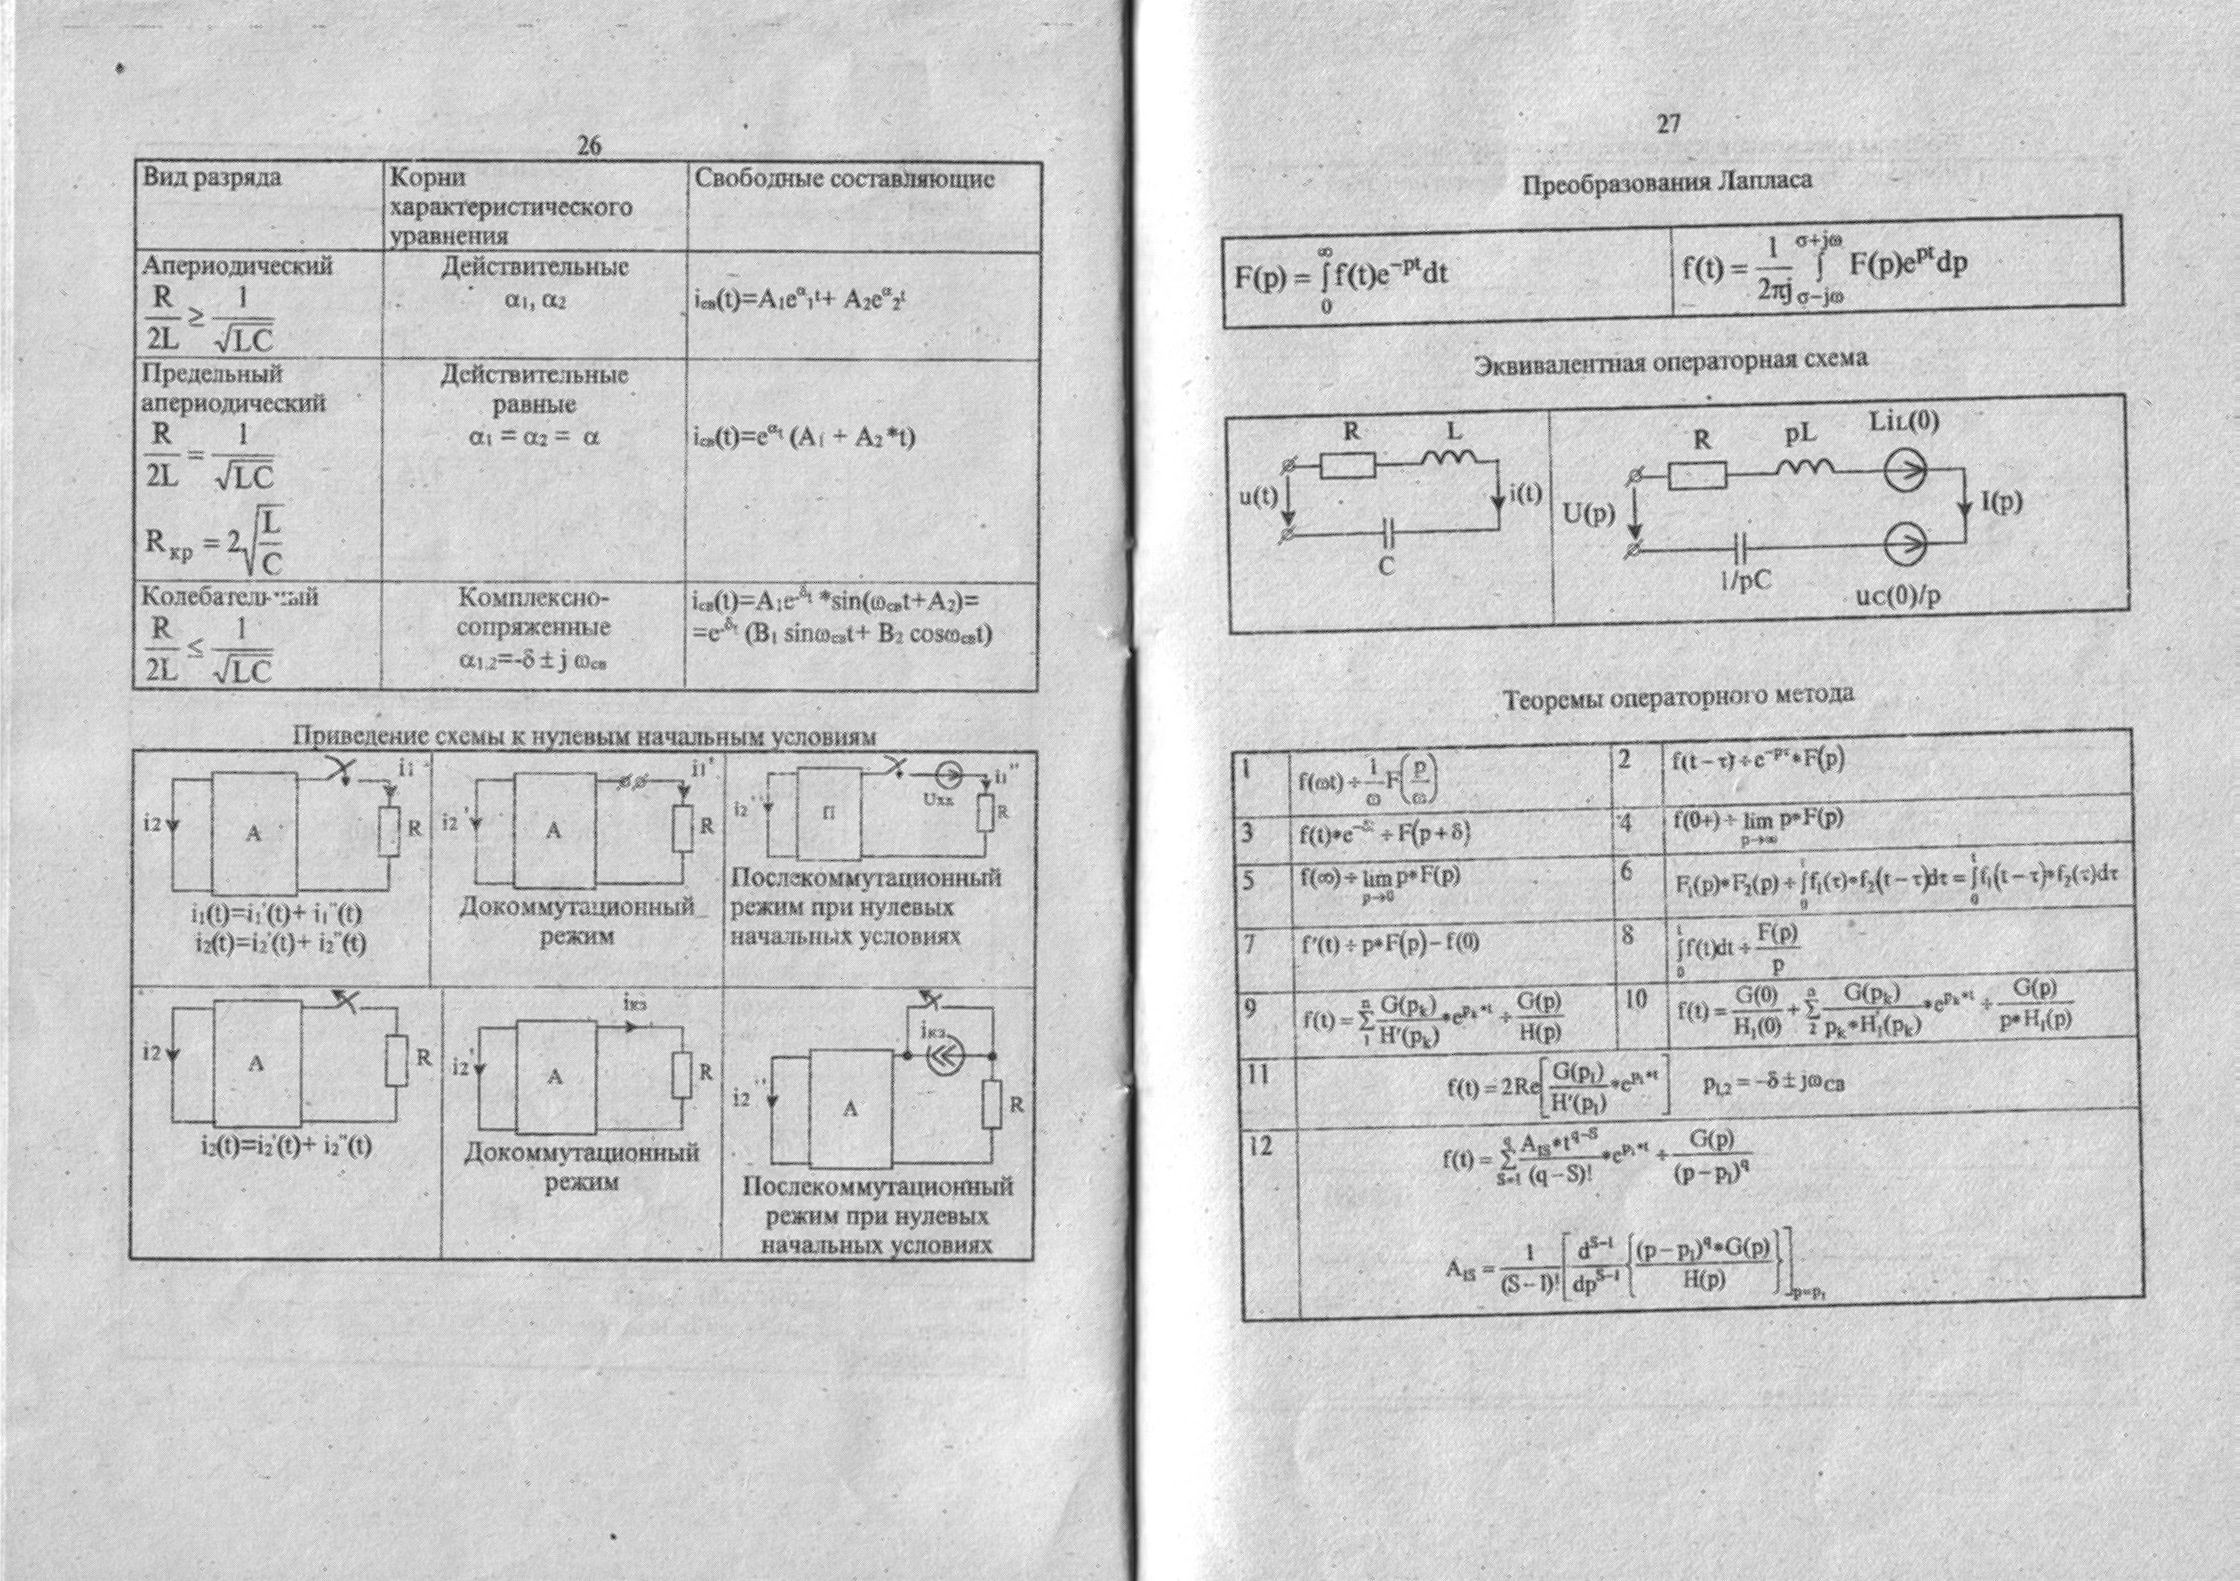 26
Вид разряда
Корни характеристического уравнения
Свободные составляющие
Апериодический
R/2L ≥ 1/√LC
Действительные
α1, α2
iсв(t)=A1e^α1t+ A2e^α2t
Предельный
апериодический
R/2L = 1/√LC
Rкр = 2√L/C
Действительные
равные
α1 = α2 = α
iсв(t)=e^αt (A1 + A2*t)
Колебательный
R/2L ≤ 1/√LC
Комплексно-
сопряженные
α1,2=-δ ± j ωсв
iсв(t)=A1e^-δt *sin(ωсвt+A2)=
=e^-δt (B1 sinωсвt+ B2 cosωсвt)
Приведение схемы к нулевым начальным условиям
i2 A i1 R
i1(t)=i1'(t)+ i1''(t)
i2(t)=i2'(t)+ i2''(t)
i2' A i1' R
Докоммутационный
режим
i2'' П Uхх i1'' R
Послекоммутационный
режим при нулевых
начальных условиях
i2 A R
i2(t)=i2'(t)+ i2''(t)
i2' A iкз R
Докоммутационный
режим
i2'' A iкз R
Послекоммутационный
режим при нулевых
начальных условиях
27
Преобразования Лапласа
F(p) = ∫0^∞ f(t)e^−pt dt
f(t) = 1/2πj ∫σ−jω^σ+jω F(p)e^pt dp
Эквивалентная операторная схема
R L
u(t) i(t)
C
R pL LiL(0)
U(p) I(p)
1/pC
uC(0)/p
Теоремы операторного метода
1 f(ωt) ÷ 1/ω F(p/ω)
2 f(t − τ) ÷ e^−pτ * F(p)
3 f(t)*e^−δt ÷ F(p + δ)
4 f(0+) ÷ lim p→∞ p*F(p)
5 f(∞) ÷ lim p→0 p*F(p)
6 F1(p)*F2(p) ÷ ∫0^t f1(τ)*f2(t − τ)dτ = ∫0^t f1(t − τ)*f2(τ)dτ
7 f'(t) ÷ p*F(p) − f(0)
8 ∫0^t f(t)dt ÷ F(p)/p
9 f(t) = Σ1^n G(pk)/H'(pk) *e^pk*t ÷ G(p)/H(p)
10 f(t) = G(0)/H1(0) + Σ2^n G(pk)/pk*H1'(pk) *e^pk*t ÷ G(p)/p*H1(p)
11 f(t) = 2Re[G(p1)/H'(p1) *e^p1*t] p1,2 = −δ ± jωСВ
12 f(t) = ΣS=1^q A1S*t^q−S/(q − S)! *e^p1*t ÷ G(p)/(p − p1)^q
A1S = 1/(S − 1)! [d^S−1/dp^S−1 {(p − p1)^q*G(p)/H(p)}]p=p1